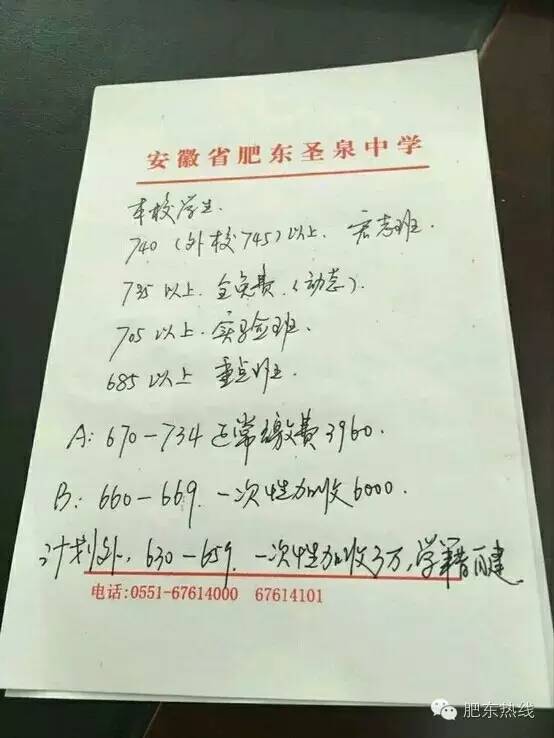 安徽省肥东圣泉中学
本校学生.
740（外校745）以上. 宏志班.
735以上. 全免费.（动态）.
705以上. 实验班.
685以上 重点班.
A: 670—734 正常缴费3960.
B: 660—669. 一次性加收6000.
计划外. 630—659. 一次性加收3万, 学籍可建
电话:0551-67614000 67614101
肥东热线